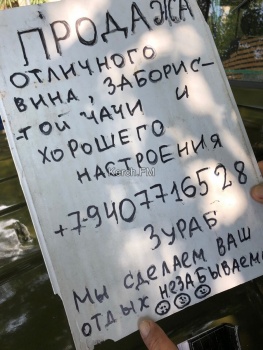 ПРОДАЖА
ОТЛИЧНОГО
ВИНА, ЗАБОРИС-
ТОЙ ЧАЧИ И
ХОРОШЕГО
НАСТРОЕНИЯ
Kerch.FM
+79407716528
ЗУРАБ
МЫ СДЕЛАЕМ ВАШ
ОТДЫХ НЕЗАБЫВАЕМ